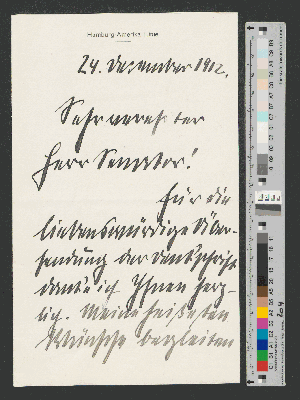 Hamburg-Amerika Linie
24. Dezember 1912.
Sehr verehrter
Herr Senator!
Für die
liebenswürdige Über-
sendung der Denkschrift
danke ich Ihnen herz-
lich. Meine heißesten
Wünsche begleiten